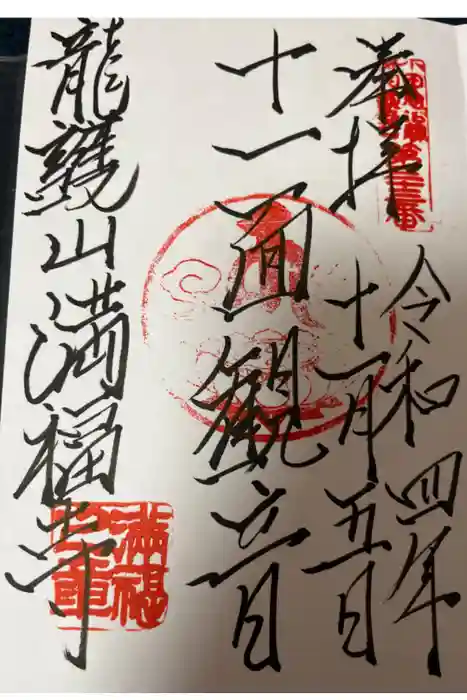 奉拝
令和四年
十一月五日
十一面観音
龍護山満福寺
満福